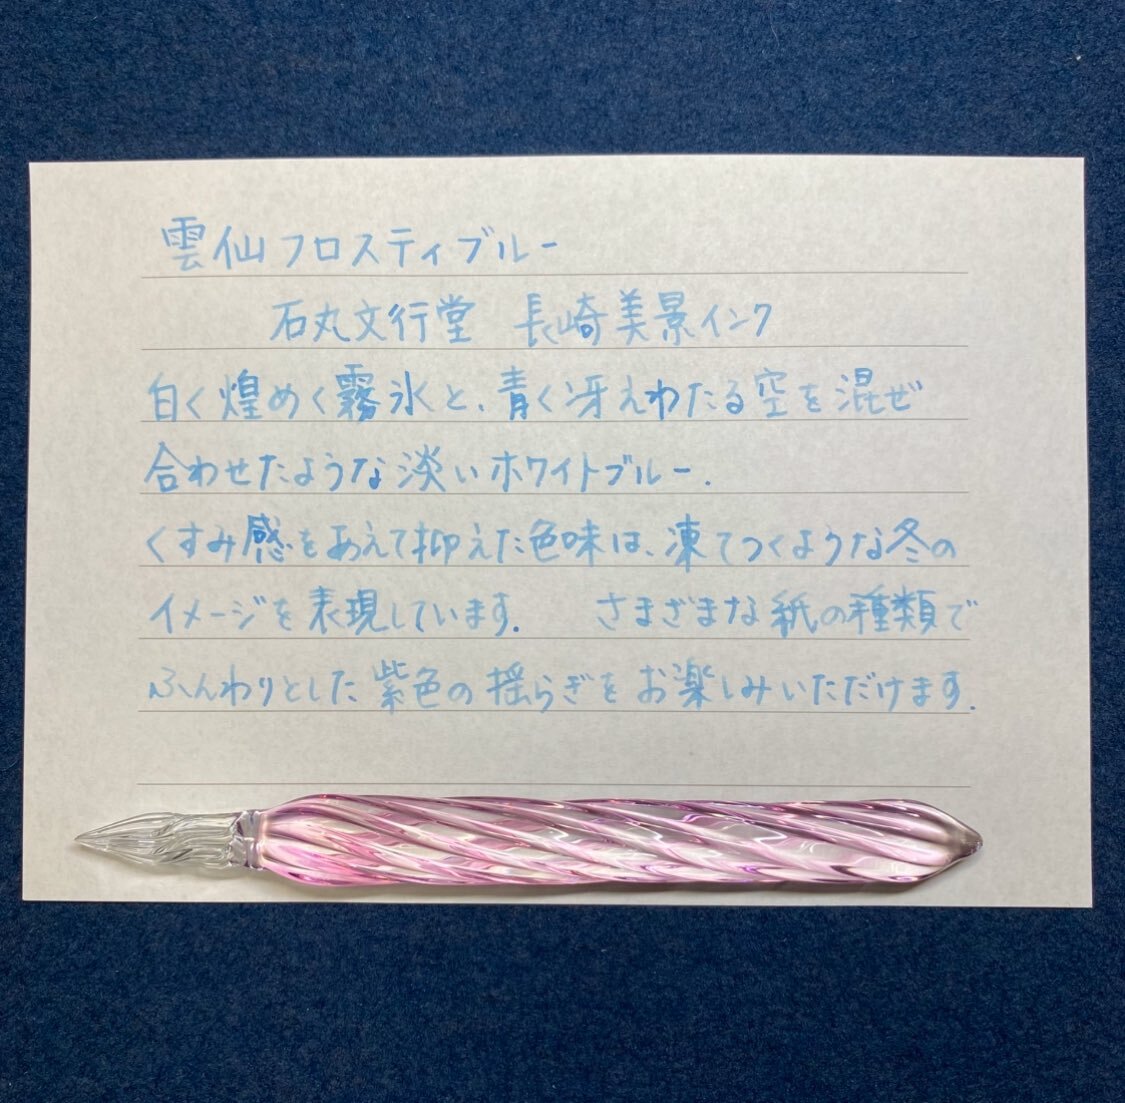 雲仙フロスティブルー
石丸文行堂 長崎美景インク
白く煌めく霧氷と、青く冴えわたる空を混ぜ
合わせたような淡いホワイトブルー.
くすみ感をあえて抑えた色味は、凍てつくような冬の
イメージを表現しています. さまざまな紙の種類で
ふんわりとした紫色の揺らぎをお楽しみいただけます.